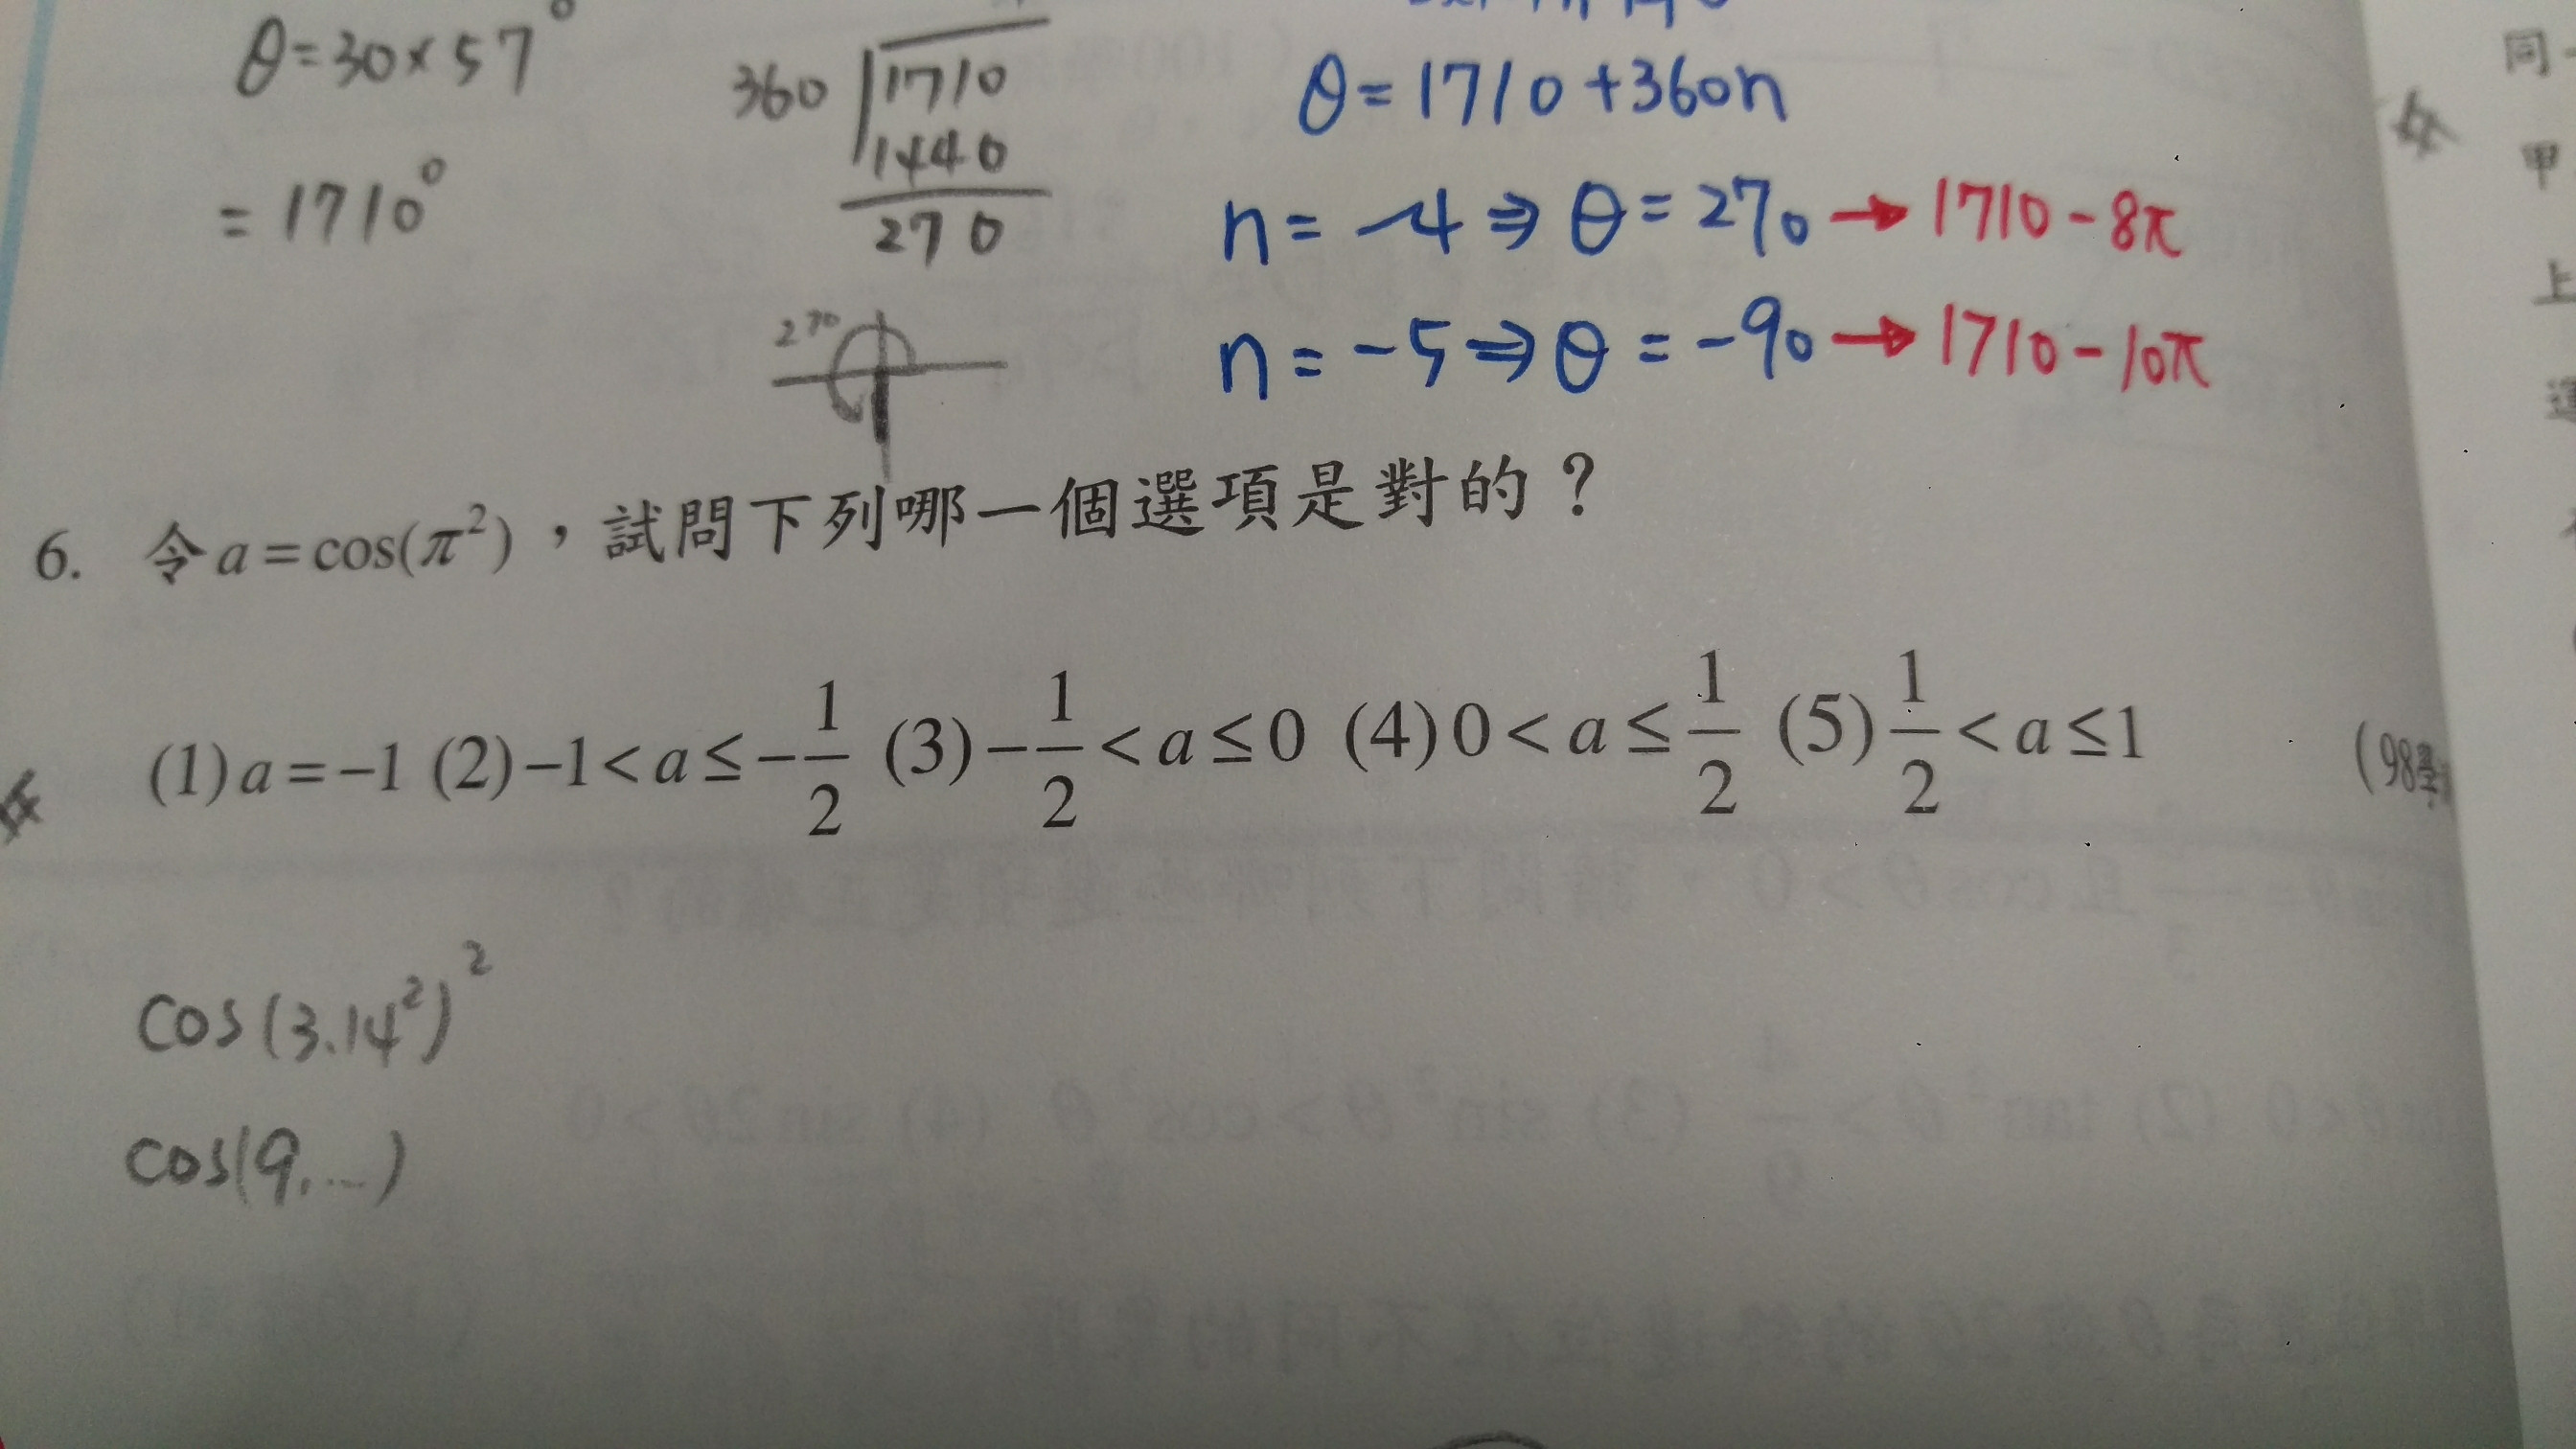 θ=30×57°
=1710°
360
1710
1440
270
270
θ=1710+360n
n=-4⇒θ=270→1710-8π
n=-5⇒θ=-90→1710-10π
6. 令a=cos(π²)，試問下列哪一個選項是對的？
(1)a=−1 (2)−1<a≤−1/2 (3)−1/2<a≤0 (4)0<a≤1/2 (5)1/2<a≤1
(98學
cos(3.14²)²
cos(9.…)
同
甲
上